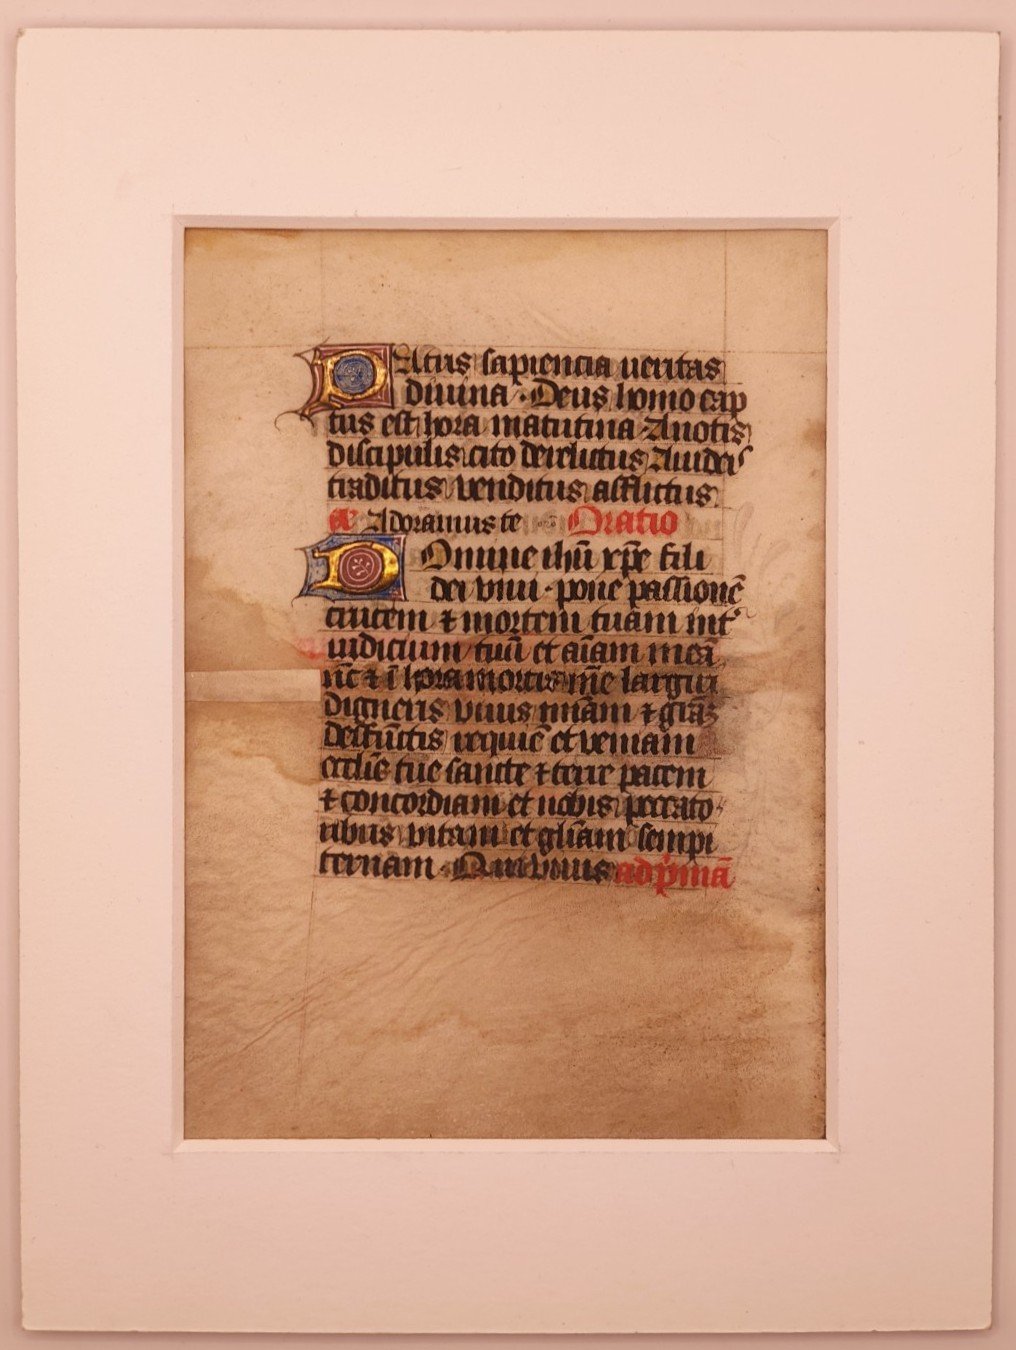 Patris sapiencia veritas
diuina · Deus homo cap
tus est hora matutina · A notis
discipulis cito derelictus A iudeis
traditus venditus afflictus
Adoramus te Oratio
Domine ihū xp̄e fili
dei viui · pone passionē
crucem ⁊ mortem tuam int
iudicium tuū et aīam meā
nūc ⁊ ī hora mortis mee largiri
digneris viuis mīam ⁊ grāz
defūctis requiē et veniam
eccl̄ie tue sancte ⁊ terre pacem
⁊ concordiam et nobis peccato
ribus vitam et glīam sempi
ternam · Qui viuis ad p̄mā